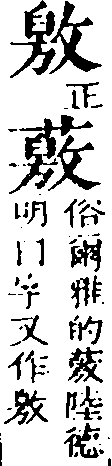 敫
正
薂
俗爾雅的薂陸德
明曰字又作敫